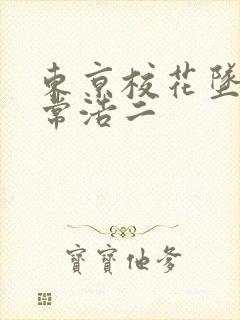 東京校花墜
常浩二
寶寶他爹